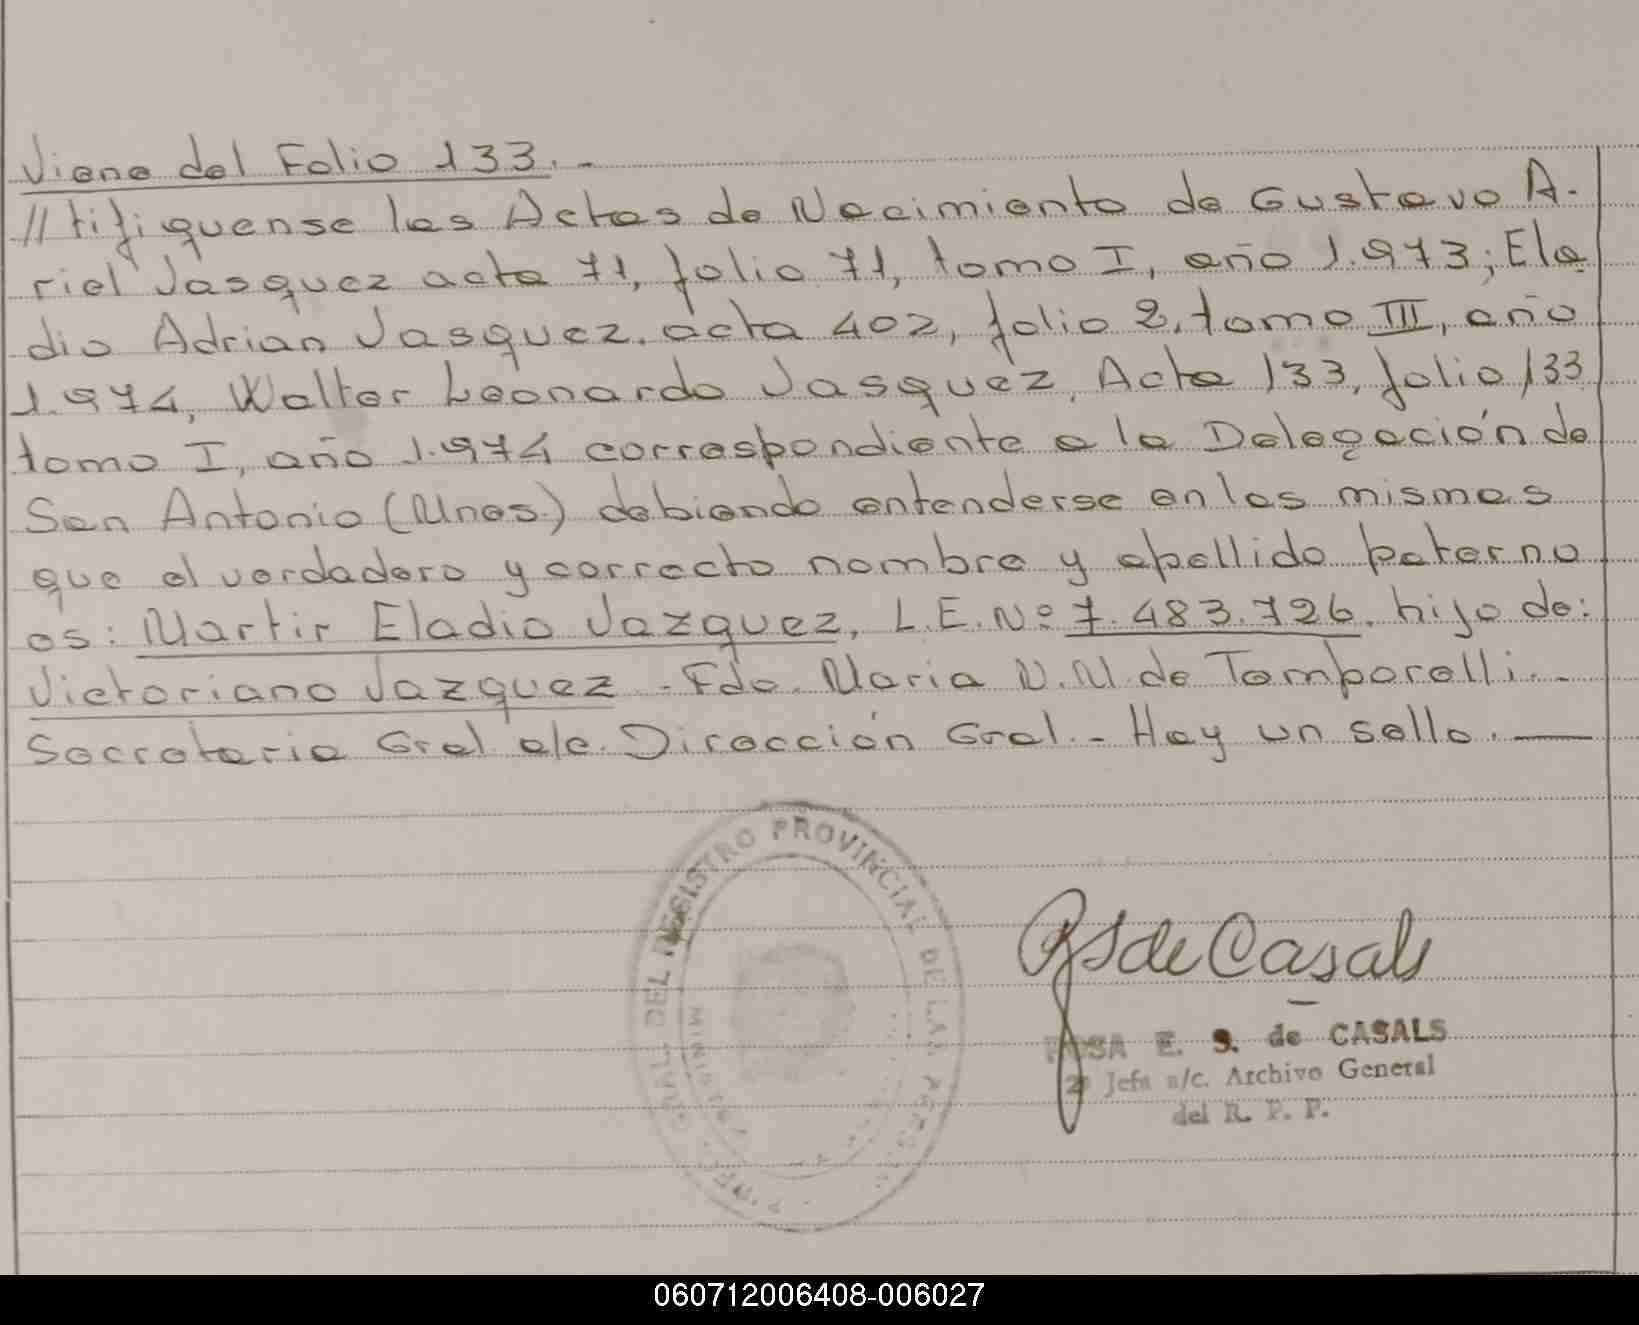 Viene del Folio 133.-
//tifiquense las Actas de Nacimiento de Gustavo A-
riel Vasquez acta 71, folio 71, tomo I, año 1.973; Ela
dio Adrian Vasquez, acta 402, folio 2, tomo III, año
1.974, Walter Leonardo Vasquez, Acta 133, folio 133
tomo I, año 1.974 correspondiente a la Delegación de
San Antonio (Mnes.) debiendo entenderse en las mismas
que el verdadero y correcto nombre y apellido paterno
es: Martir Eladio Vazquez, L.E.Nº 7.483.726, hijo de:
Victoriano Vazquez -Fdo. Maria N.M. de Tamborelli.-
Secretaria Gral a/c. Dirección Gral.- Hay un sello.
DEL REGISTRO PROVINCIAL DE LAS
MINISTE
RS de Casals
ROSA E. S. de CASALS
2ª Jefa a/c. Archivo General
del R. P. P.
060712006408-006027